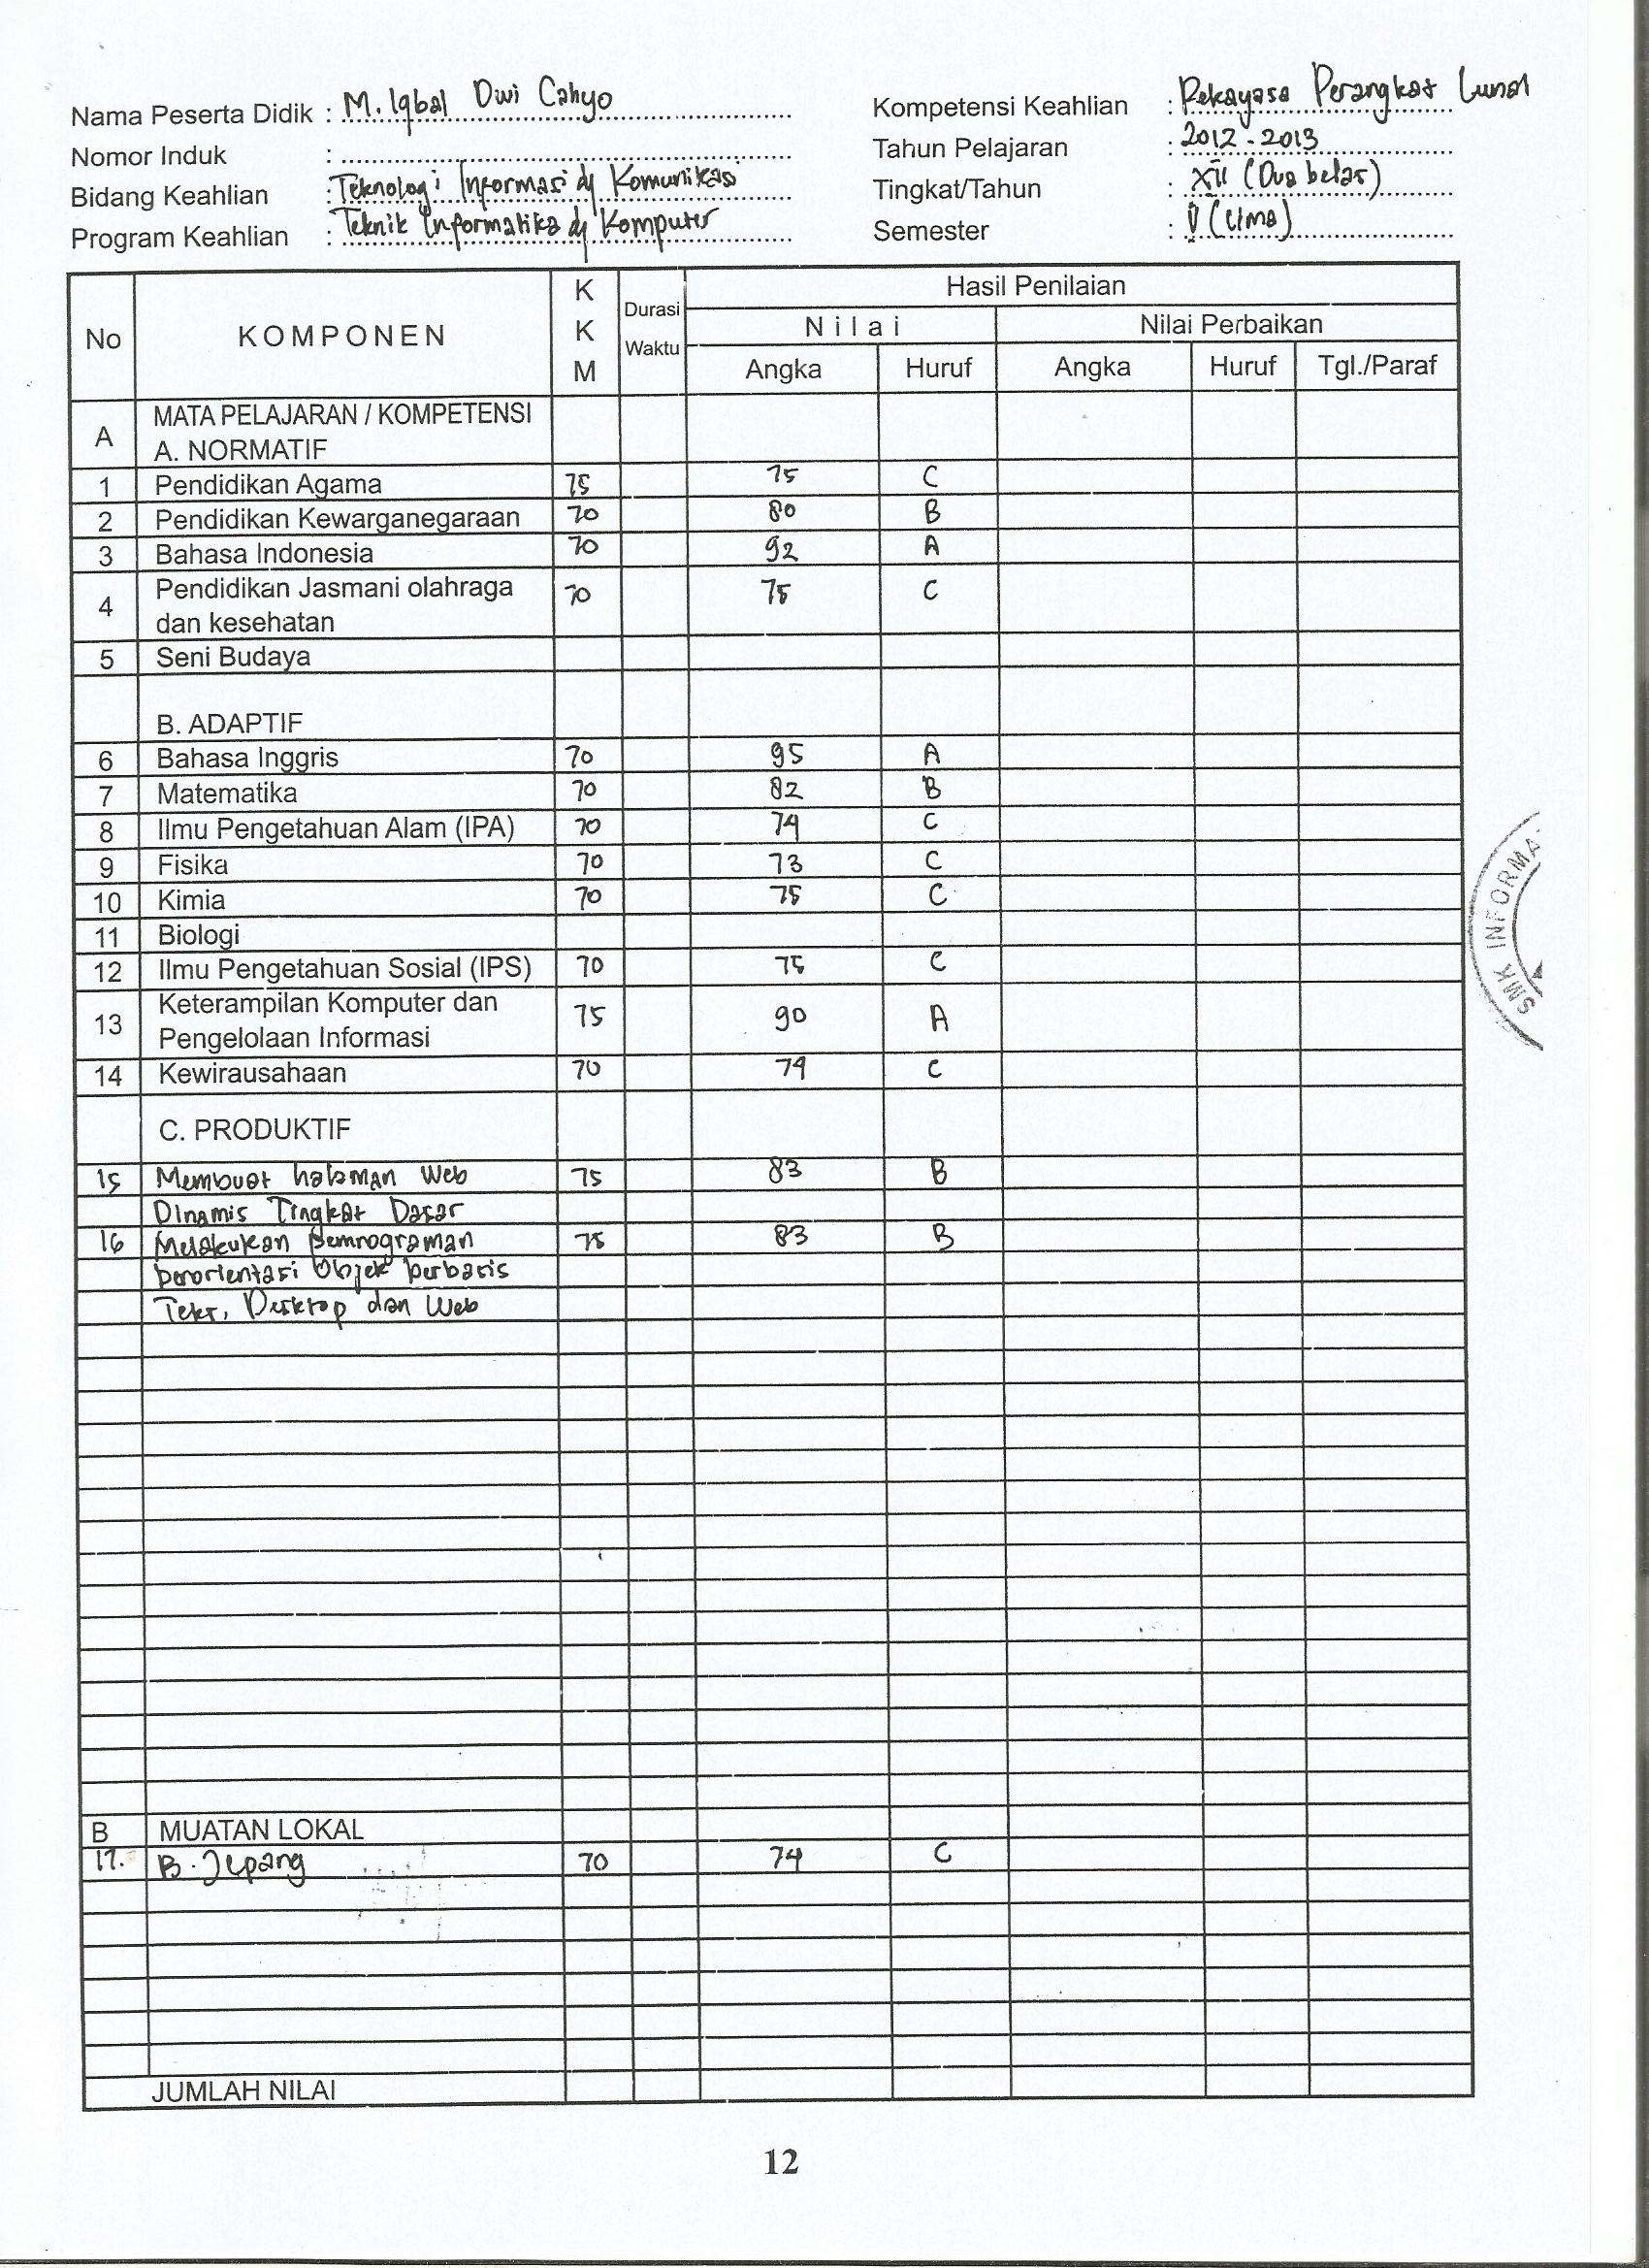 Nama Peserta Didik : M. Iqbal Dwi Cahyo
Nomor Induk :
Bidang Keahlian : Teknologi Informasi dg Komunikasi
Program Keahlian : Teknik Informatika dg Komputer
Kompetensi Keahlian : Rekayasa Perangkat Lunak
Tahun Pelajaran : 2012-2013
Tingkat/Tahun : XII (Dua belas)
Semester : V (Lima)
No KOMPONEN KKM Durasi Waktu Hasil Penilaian
Nilai Nilai Perbaikan
Angka Huruf Angka Huruf Tgl./Paraf
A MATA PELAJARAN / KOMPETENSI
A. NORMATIF
1 Pendidikan Agama 75 75 C
2 Pendidikan Kewarganegaraan 70 80 B
3 Bahasa Indonesia 70 92 A
4 Pendidikan Jasmani olahraga 70 75 C
dan kesehatan
5 Seni Budaya
B. ADAPTIF
6 Bahasa Inggris 70 95 A
7 Matematika 70 82 B
8 Ilmu Pengetahuan Alam (IPA) 70 74 C
9 Fisika 70 73 C
10 Kimia 70 75 C
11 Biologi
12 Ilmu Pengetahuan Sosial (IPS) 70 75 C
13 Keterampilan Komputer dan 75 90 A
Pengelolaan Informasi
14 Kewirausahaan 70 74 C
C. PRODUKTIF
15 Membuat halaman Web 75 83 B
Dinamis Tingkat Dasar
16 Melakukan Pemrograman 75 83 B
berorientasi Objek berbasis
Teks, Desktop dan Web
B MUATAN LOKAL
17. B. Jepang 70 74 C
JUMLAH NILAI
12
SMK INFORMA